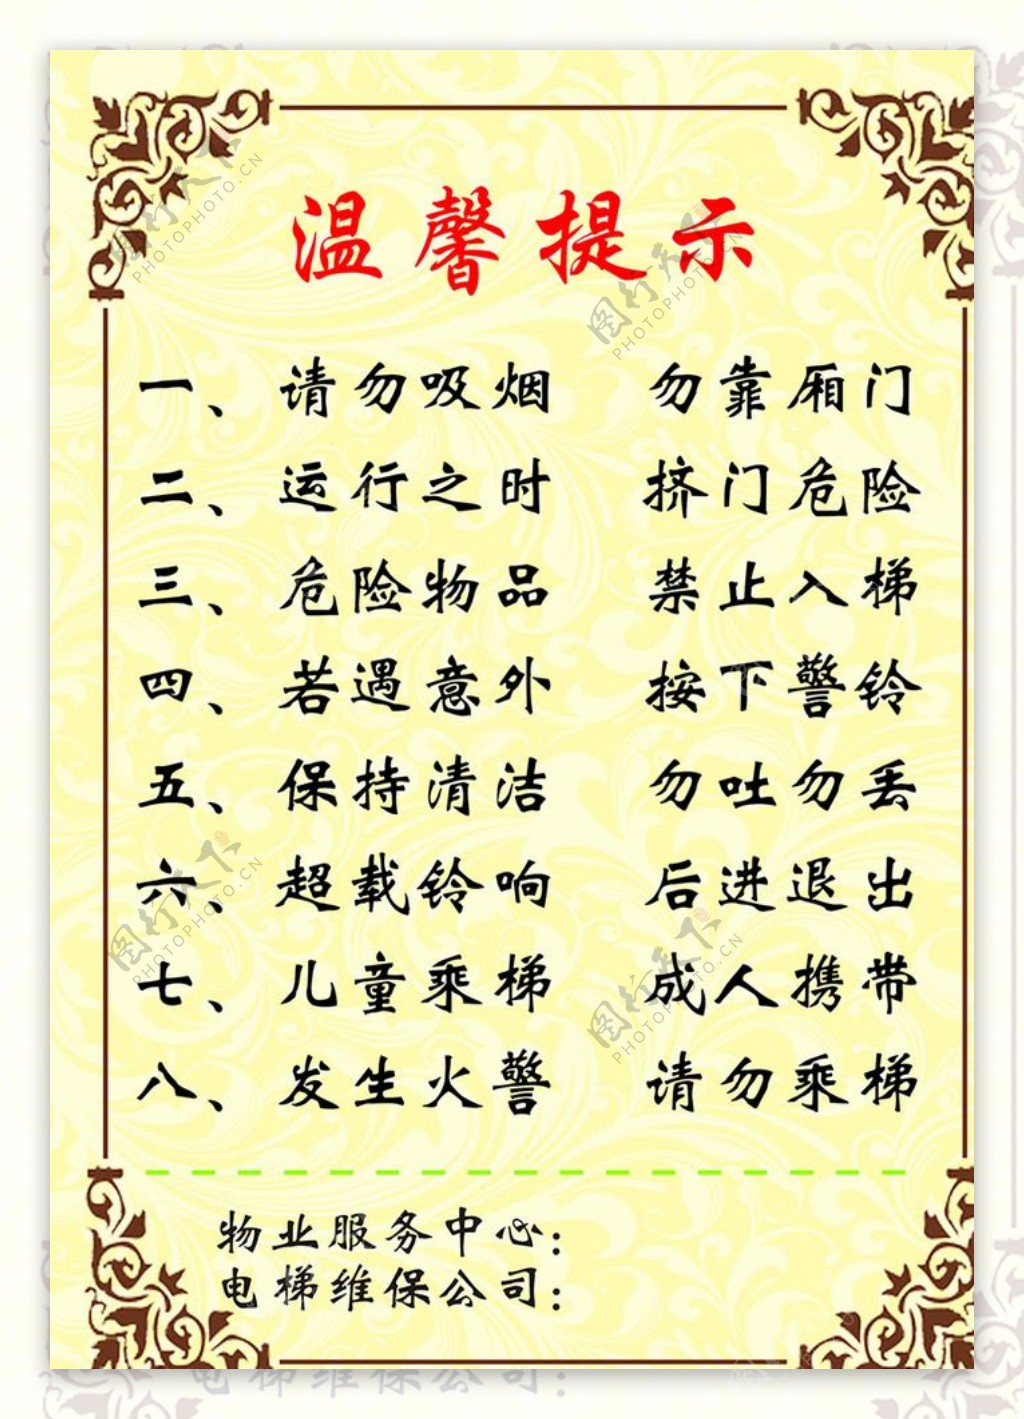 温馨提示
一、请勿吸烟 勿靠厢门
二、运行之时 挤门危险
三、危险物品 禁止入梯
四、若遇意外 按下警铃
五、保持清洁 勿吐勿丢
六、超载铃响 后进退出
七、儿童乘梯 成人携带
八、发生火警 请勿乘梯
物业服务中心：
电梯维保公司：
电梯维保公司：
图行天下
PHOTOPHOTO.CN
图行天下
PHOTOPHOTO.CN
图行天下
PHOTOPHOTO.CN
图行天下
PHOTOPHOTO.CN